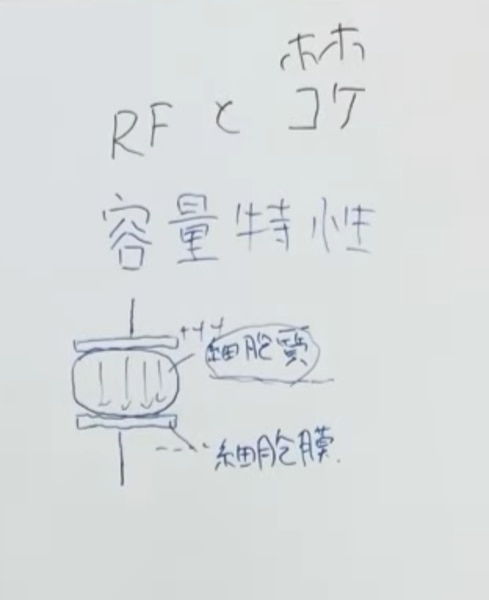 ホホ
RFとコケ
容量特性
細胞質
細胞膜